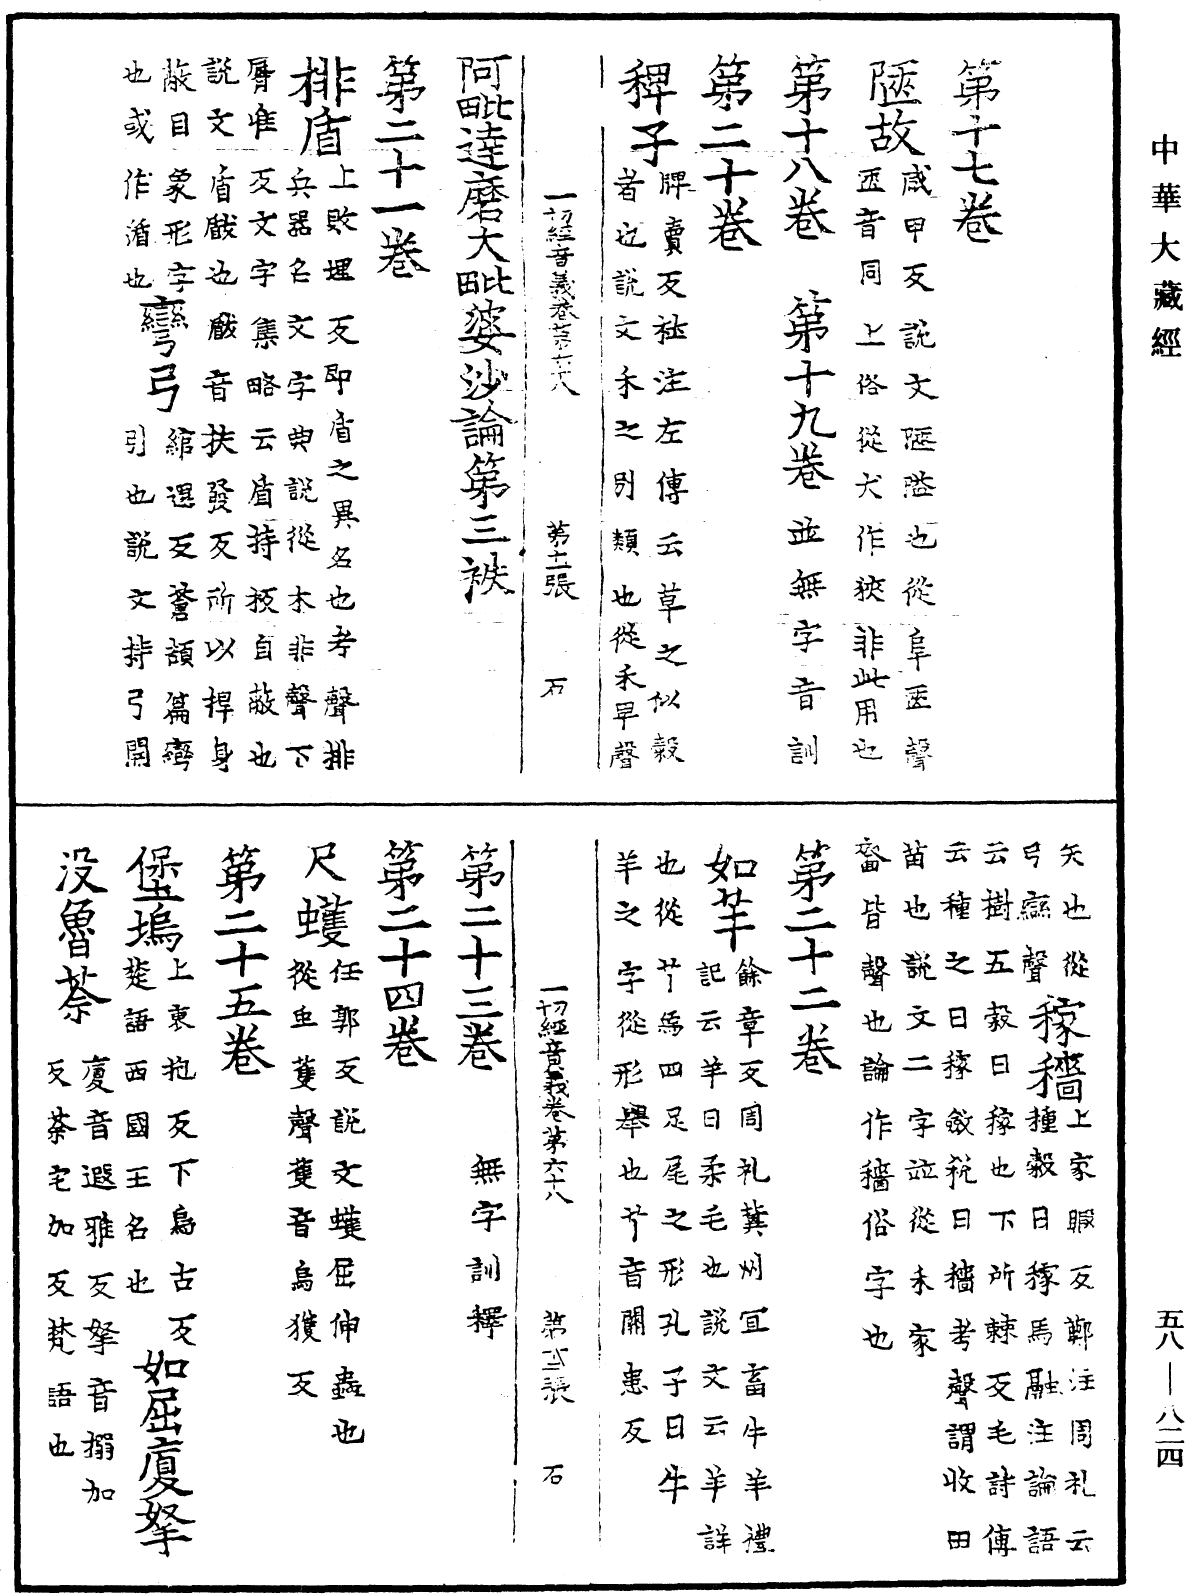 中華大藏經
第十七卷
陿故
咸甲反說文陿隘也從𨸏匧聲
匧音同上俗從犬作狹非此用也
第十八卷　第十九卷　並無字音訓
第二十卷
稗子
牌賣反杜注左傳云草之似穀
者也說文禾之別類也從禾卑聲
一切經音義卷第六十八　第十一張　石
阿毗達磨大毗婆沙論第三袟
第二十一卷
排盾
上敗埋反即盾之異名也考聲排
兵器名文字典說從木非聲下
脣准反文字集略云盾持校自蔽也
說文盾瞂也瞂音扶發反所以捍身
蔽目象形字
也或作楯也
彎弓
綰還反蒼頡篇彎
引也說文持弓關
矢也從
弓䜌聲
稼穡
上家暇反鄭注周礼云
種穀曰稼馬融注論語
云樹五穀曰稼也下所棘反毛詩傳
云種之曰稼斂稅曰穡考聲謂收田
苗也說文二字竝從禾家
嗇皆聲也論作穡俗字也
第二十二卷
如羊
餘章反周礼冀州宜畜牛羊禮
記云羊曰柔毛也說文云羊詳
也從𦫳爲四足尾之形孔子曰牛
羊之字從形舉也𦫳音關患反
一切經音義卷第六十八　第十二張　石
第二十三卷　無字訓釋
第二十四卷
尺蠖
任郭反說文蠖屈伸蟲也
從虫蒦聲蒦音烏獲反
第二十五卷
堡塢
上襃抱反下烏古反
梵語西國王名也
如屈廈拏
没魯荼
廈音遐雅反拏音搦加
反荼宅加反梵語也
五八—八二四